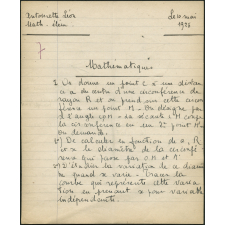 Antoinette Léon
Le 10 mai
Math. élém
1926
7
Mathématiques
On donne un point C à une distance
a du centre d'une circonférence de
rayon R et on prend sur cette circon
férence un point M. On désigne par
x l'angle COM. La sécante CM coupe
la circonférence en un 2e point M'.
On demande.
1°) De calculer en fonction de a, R
et x le diamètre de la circonfé
rence qui passe par O M et M'.
2°) D'étudier la variation de ce diamè
tre quand x varie. Tracer la
courbe qui représente cette varia
tion en prenant x pour variable
indépendante.